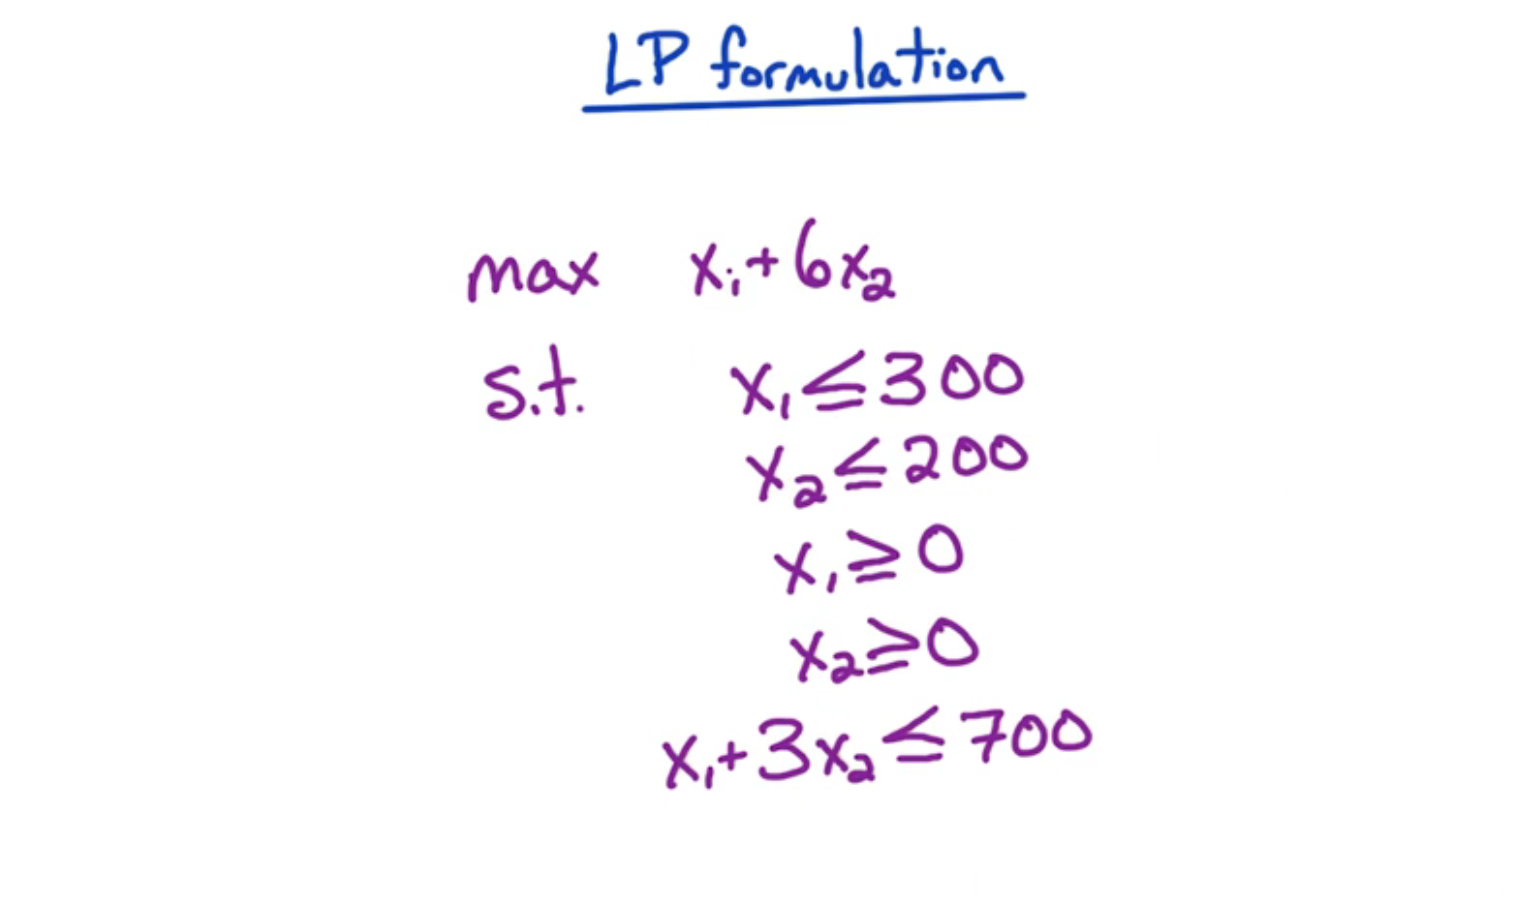 LP formulation
max x₁+6x₂
s.t. x₁≤300
x₂≤200
x₁≥0
x₂≥0
x₁+3x₂≤700